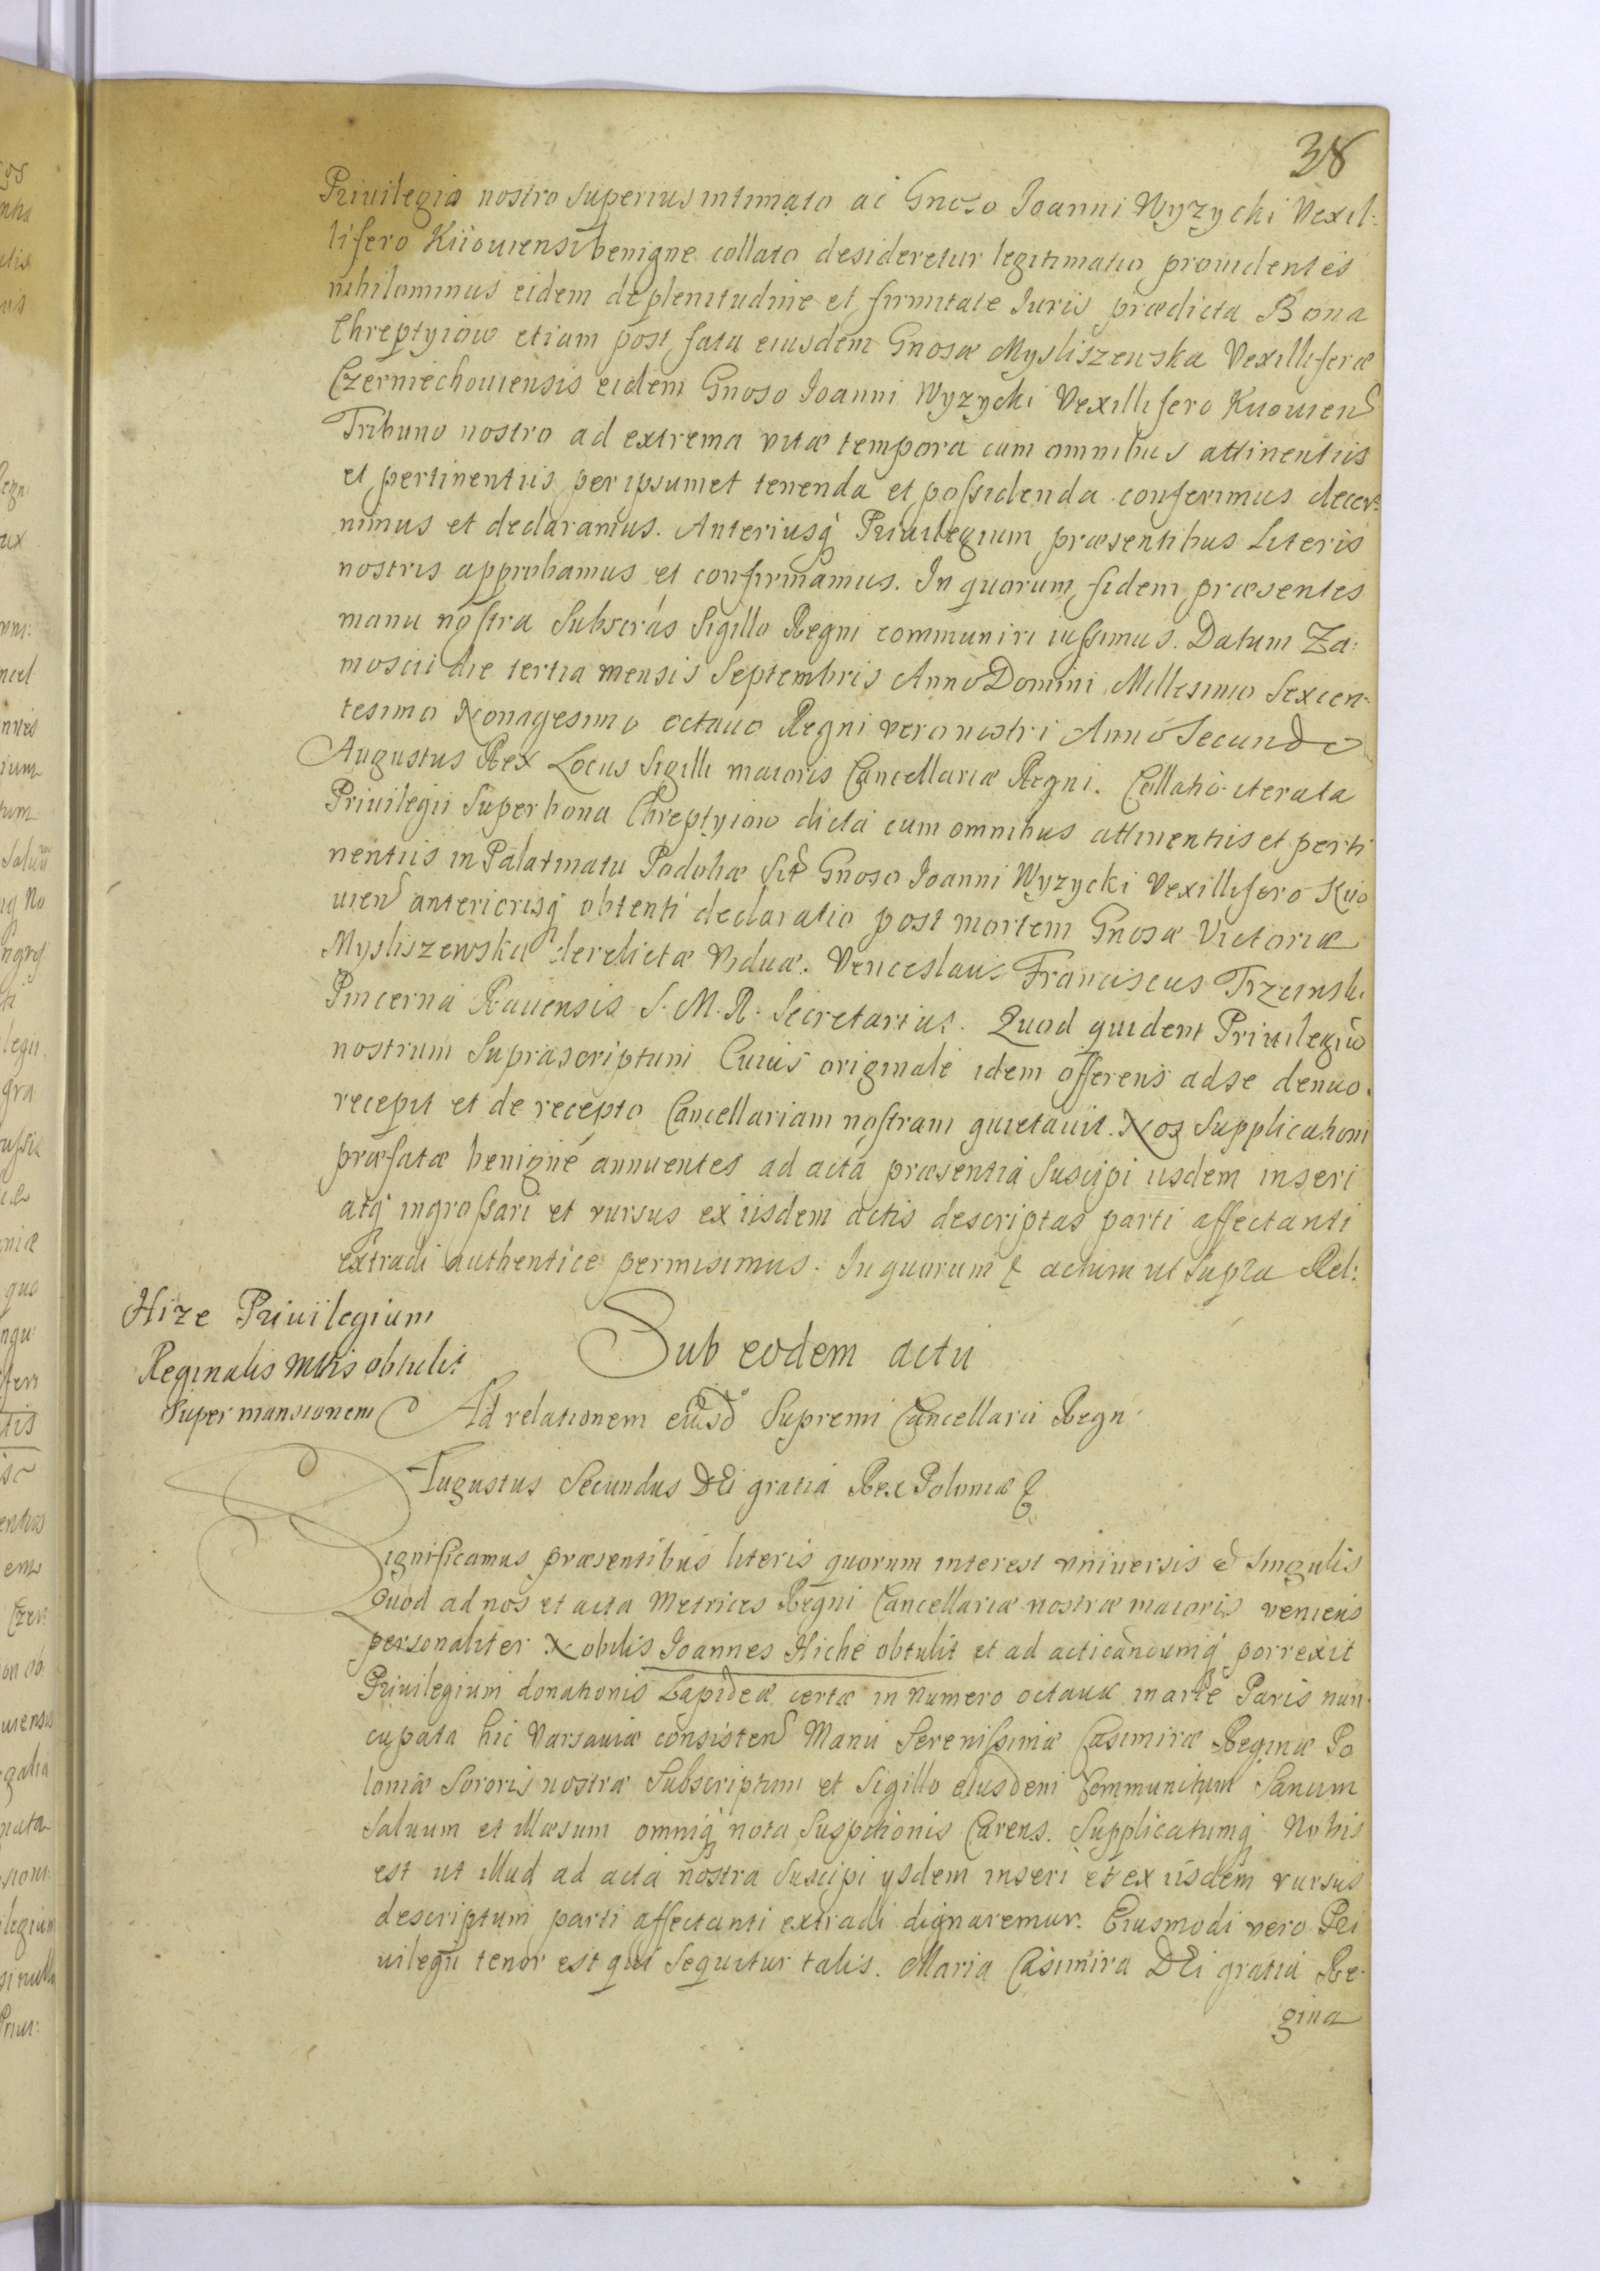 38
Priuilegio nostro superius intimato ac Gnoso Ioanni Wyzycki Vexil-
lifero Kiiouiensi benigne collato desideretur legitimatio prouidentes
nihilominus eidem de plenitudine et firmitate Iuris prædicta Bona
Chreptyiow etiam post fata eiusdem Gnosæ Mysliszewska Vexilliferæ
Czerniechouiensis eidem Gnoso Ioanni Wyzycki Vexillifero Kiiouien
Tribuno nostro ad extrema vitæ tempora cum omnibus attinentiis
et pertinentiis per ipsumet tenenda et possidenda conferimus decer-
nimus et declaramus. Anteriusq Priuilegium præsentibus Literis
nostris approbamus et confirmamus. In quorum fidem præsentes
manu nostra Subscrás Sigillo Regni communiri iussimus. Datum Za:
moscii die tertia mensis Septembris Anno Domini Millesimo Sexcen-
tesimo Nonagesimo octauo Regni vero nostri Anno Secundo
Augustus Rex Locus Sigilli maioris Cancellariæ Regni. Collatio iterata
Priuilegii Super bona Chreptyiow dicta cum omnibus attinentiis et perti
nentiis in Palatinatu Podoliæ Sit Gnoso Ioanni Wyzycki Vexillifero Kiio
uien anteriorisq obtenti declaratio post mortem Gnosæ Victoriæ
Mysliszewska derelictæ Viduæ. Venceslaus Franciscus Trzcinski
Pincerna Rauensis S. M. R. Secretarius. Quod quidem Priuilegiũ
nostrum Suprascriptum Cuius originale idem offerens ad se denuo
recepit et de recepto Cancellariam nostram quietauit. Nos Supplicationi
præfatæ benigne annuentes ad acta præsentia Suscipi iisdem inseri
atq ingrossari et rursus ex iisdem actis descriptas parti affectanti
extradi authentice permisimus. In quorum & actum ut Supra Rel:
Hize Priuilegium
Reginalis Mttis obtulit
Super mansionem
Sub eodem actu
Ad relationem eiusd Supremi Cancellarii Regn
Augustus Secundus DEi gratia Rex Poloniæ &
Significamus præsentibus literis quorum interest vniuersis et Singulis
Quod ad nos et acta Metrices Regni Cancellariæ nostræ maioris veniens
personaliter Nobilis Ioannes Hiche obtulit et ad acticandumq porrexit
Priuilegium donationis Lapideæ certæ in numero octaua in arte Paris nun-
cupata hic Varsauiæ consisten Manu Serenissimæ Casimiræ Reginæ Po
loniæ Sororis nostræ Subscriptum et Sigillo eiusdem Communitum Sanum
Saluum et illæsum omniq nota Suspitionis Carens. Supplicatumq Nobis
est ut illud ad acta nostra Suscipi ysdem inseri et ex iisdem rursus
descriptum parti affectanti extradi dignaremur. Eiusmodi vero Pri
uilegii tenor est qui Sequitur talis. Maria Casimira DEi gratia Re-
gina